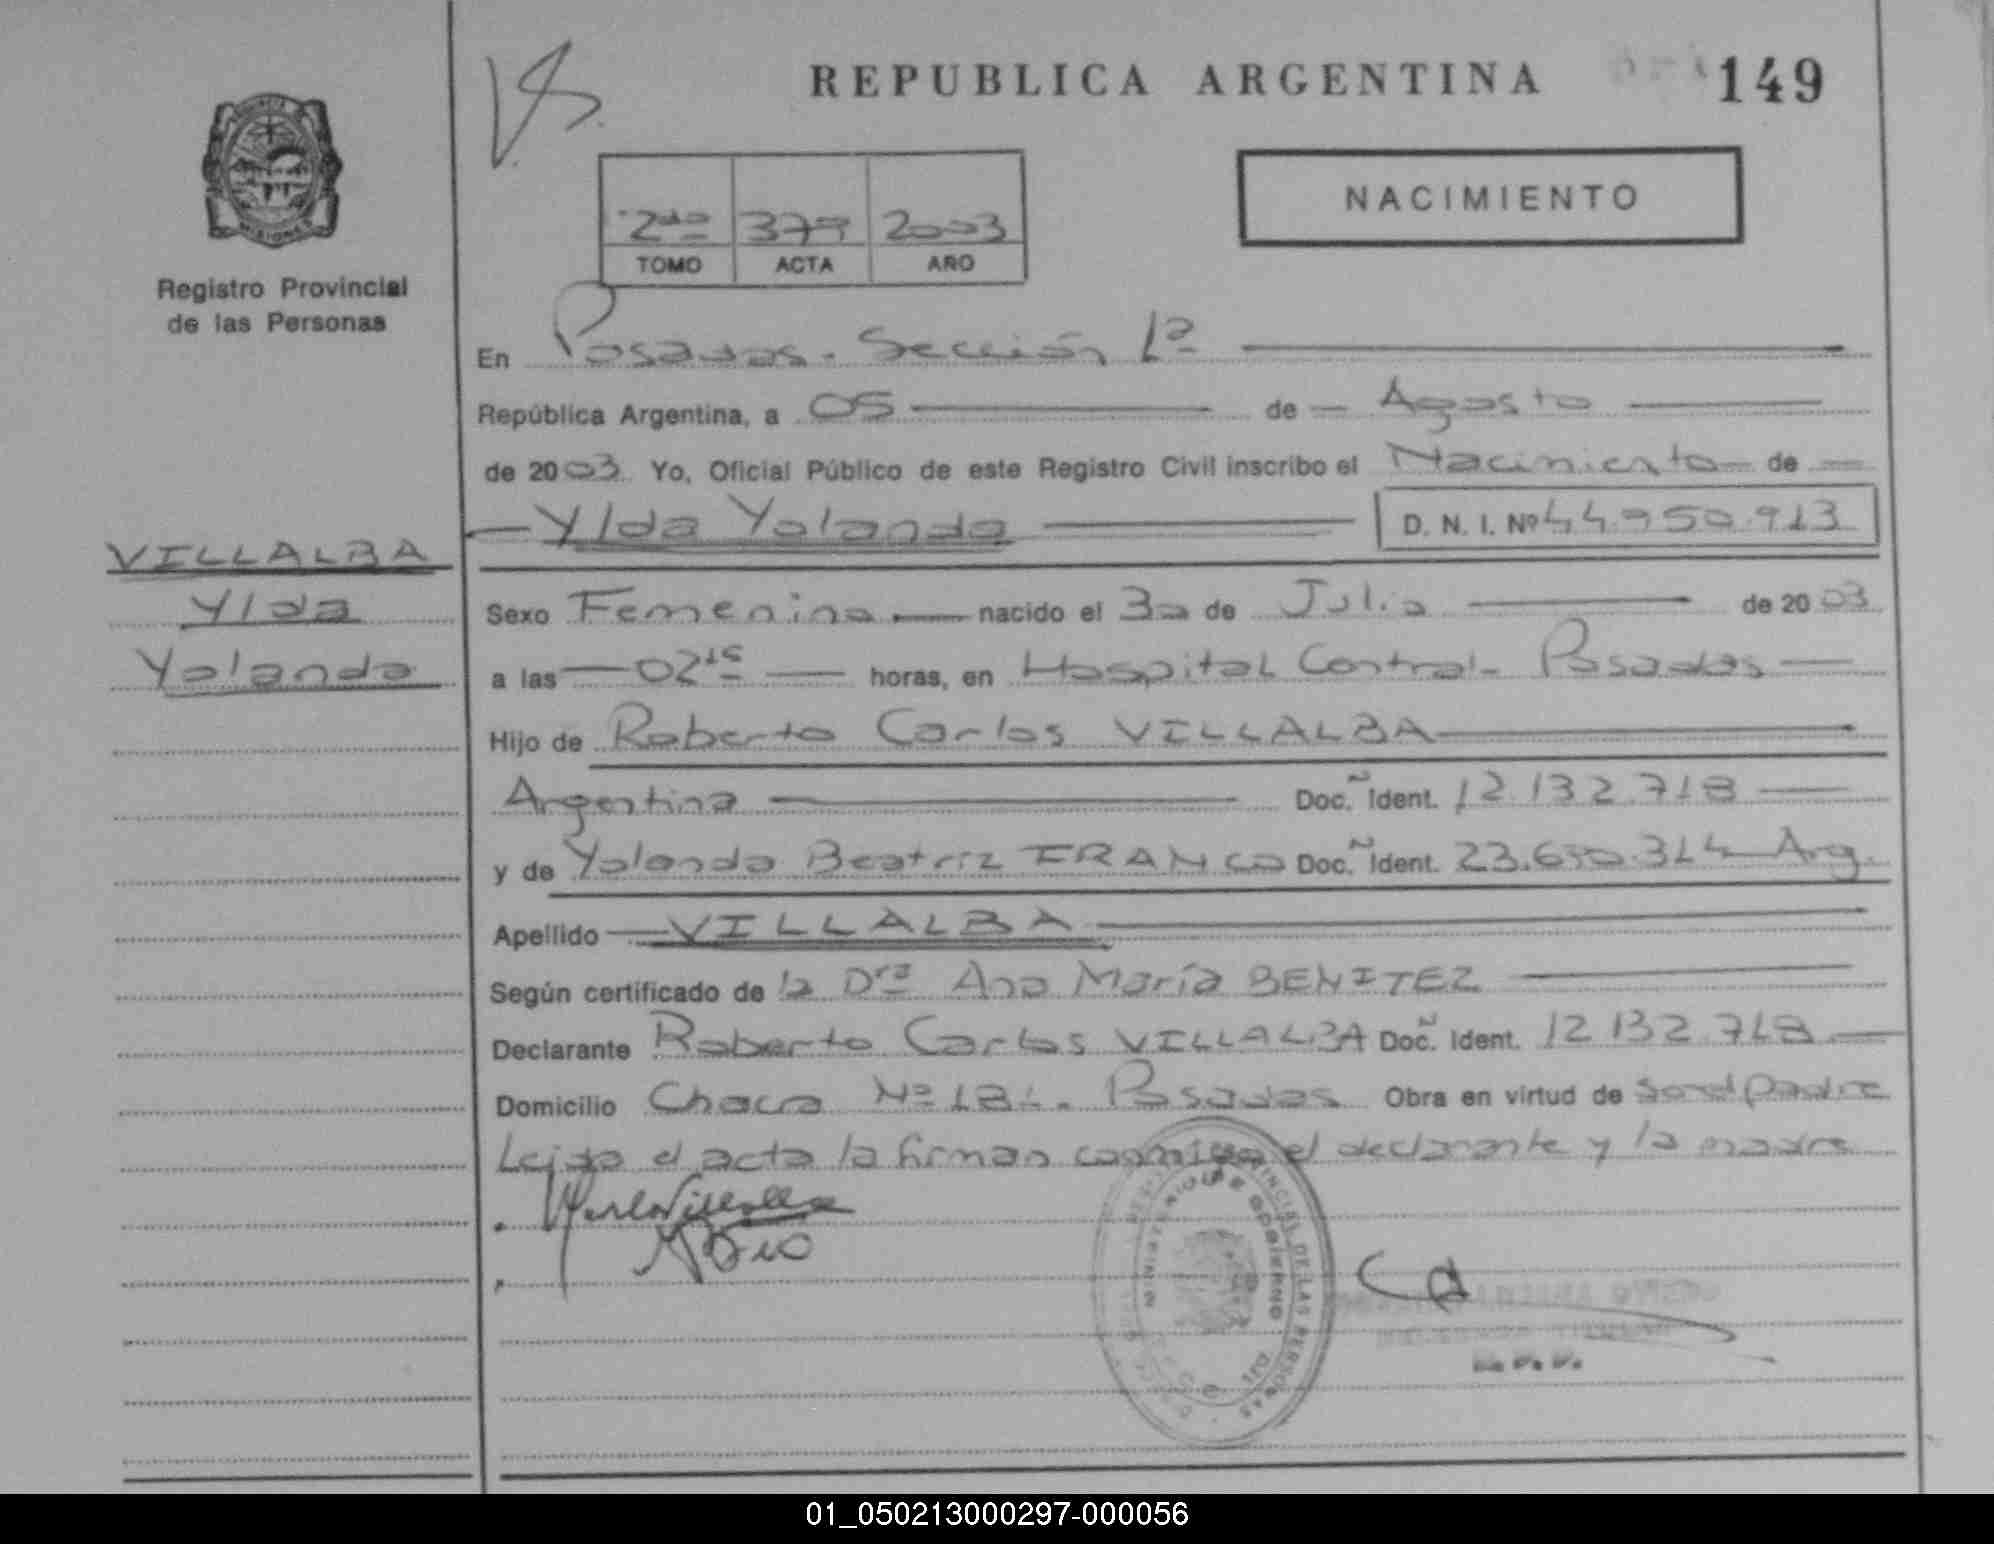 REPUBLICA ARGENTINA 149
NACIMIENTO
2do 379 2003
TOMO ACTA AÑO
MISIONES
Registro Provincial
de las Personas
En Posadas. Sección 1ª
República Argentina, a 05 de Agosto
de 2003 Yo, Oficial Público de este Registro Civil inscribo el Nacimiento de
Ylda Yolanda D. N. I. Nº 44.950.913
VILLALBA
Ylda
Yolanda
Sexo Femenino nacido el 30 de Julio de 2003
a las 02 15 horas, en Hospital Central - Posadas
Hijo de Roberto Carlos VILLALBA
Argentina Doc. Ident. 12.132.718
y de Yolanda Beatriz FRANCO Doc. Ident. 23.650.314 Arg.
Apellido VILLALBA
Según certificado de la Dra Ana María BENITEZ
Declarante Roberto Carlos VILLALBA Doc. Ident. 12.132.718
Domicilio Chacra Nº 181. Posadas Obra en virtud de ser el padre
Leida el acta la firman conmigo el declarante y la madre
MINISTERIO DE GOBIERNO
01_050213000297-000056